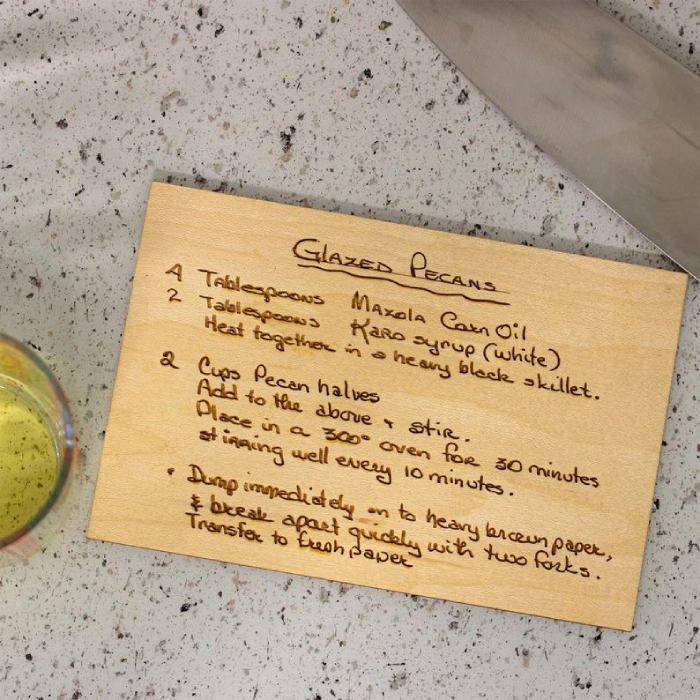 Glazed Pecans
4 Tablespoons Maxola Corn Oil
2 Tablespoons Karo syrup (white)
Heat together in a heavy black skillet.
2 Cups Pecan halves
Add to the above & stir.
Place in a 300° oven for 30 minutes
stirring well every 10 minutes.
• Dump immediately on to heavy brown paper,
& break apart quickly with two forks.
Transfer to fresh paper